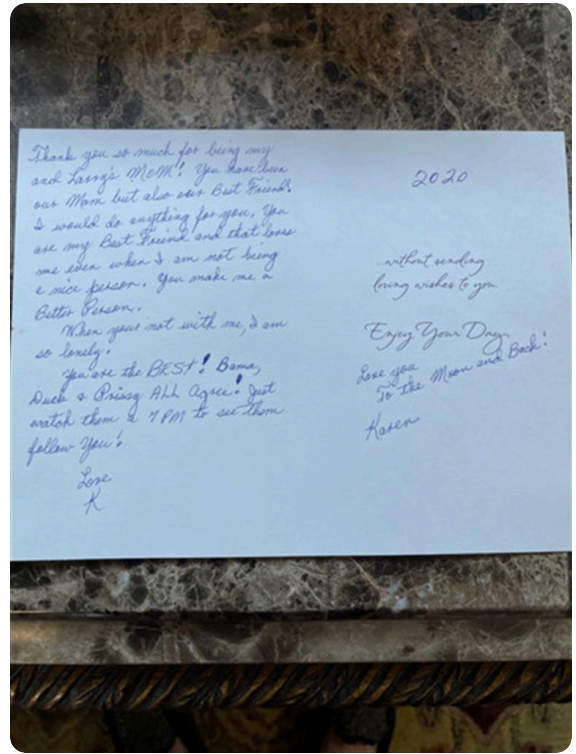 Thank you so much for being my
and Larry's MOM! You have been
our Mom but also our Best Friend!
I would do anything for you. You
are my Best Friend and that loves
me even when I am not being
a nice person. You make me a
Better Person.
When your not with me, I am
so lonely.
You are the BEST! Bama,
Duck & Prissy ALL Agree! Just
watch them @ 7 PM to see them
follow You!
Love
K
2020
...without sending
loving wishes to you.
Enjoy Your Day.
Love you
To the Moon and Back!
Karen